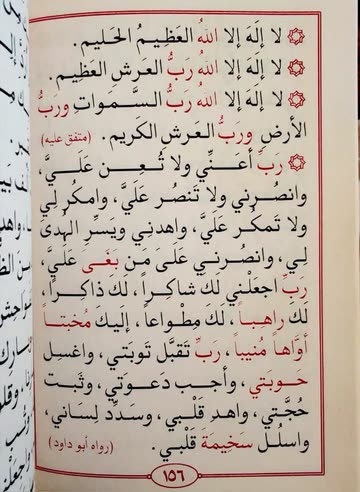 لا إِلَهَ إلا اللهُ العَظِيمُ الحَليم.
لا إِلَهَ إلا اللهُ رَبُّ العَرشِ العَظِيم.
لا إِلَهَ إلا اللهُ رَبُّ السَّمَواتِ ورَبُّ
الأرضِ ورَبُّ العَرشِ الكَريم. (متفق عليه)
رَبِّ أعَنِّي ولا تُعِن عَلَيَّ،
وانصُرنِي ولا تَنصُر عَلَيَّ، وامكُر لِي
ولا تَمكُر عَلَيَّ، واهدِنِي ويَسِّرِ الهُدَى
لِي، وانصُرنِي عَلَى مَن بَغَى عَلَيَّ،
رَبِّ اجعَلْني لَكَ شاكِراً، لَكَ ذاكِراً،
لَكَ راهِباً، لَكَ مِطْواعاً، إلَيكَ مُخبِتاً
أوَّاهاً مُنيباً، رَبِّ تَقَبَّل تَوبَتي، واغسِل
حَوبَتي، وأجِب دَعوَتي، وثَبِّت
حُجَّتي، واهدِ قَلْبي، وسَدِّد لِسَاني،
واسلُل سَخِيمَةَ قَلْبي. (رواه أبو داود)
١٥٦